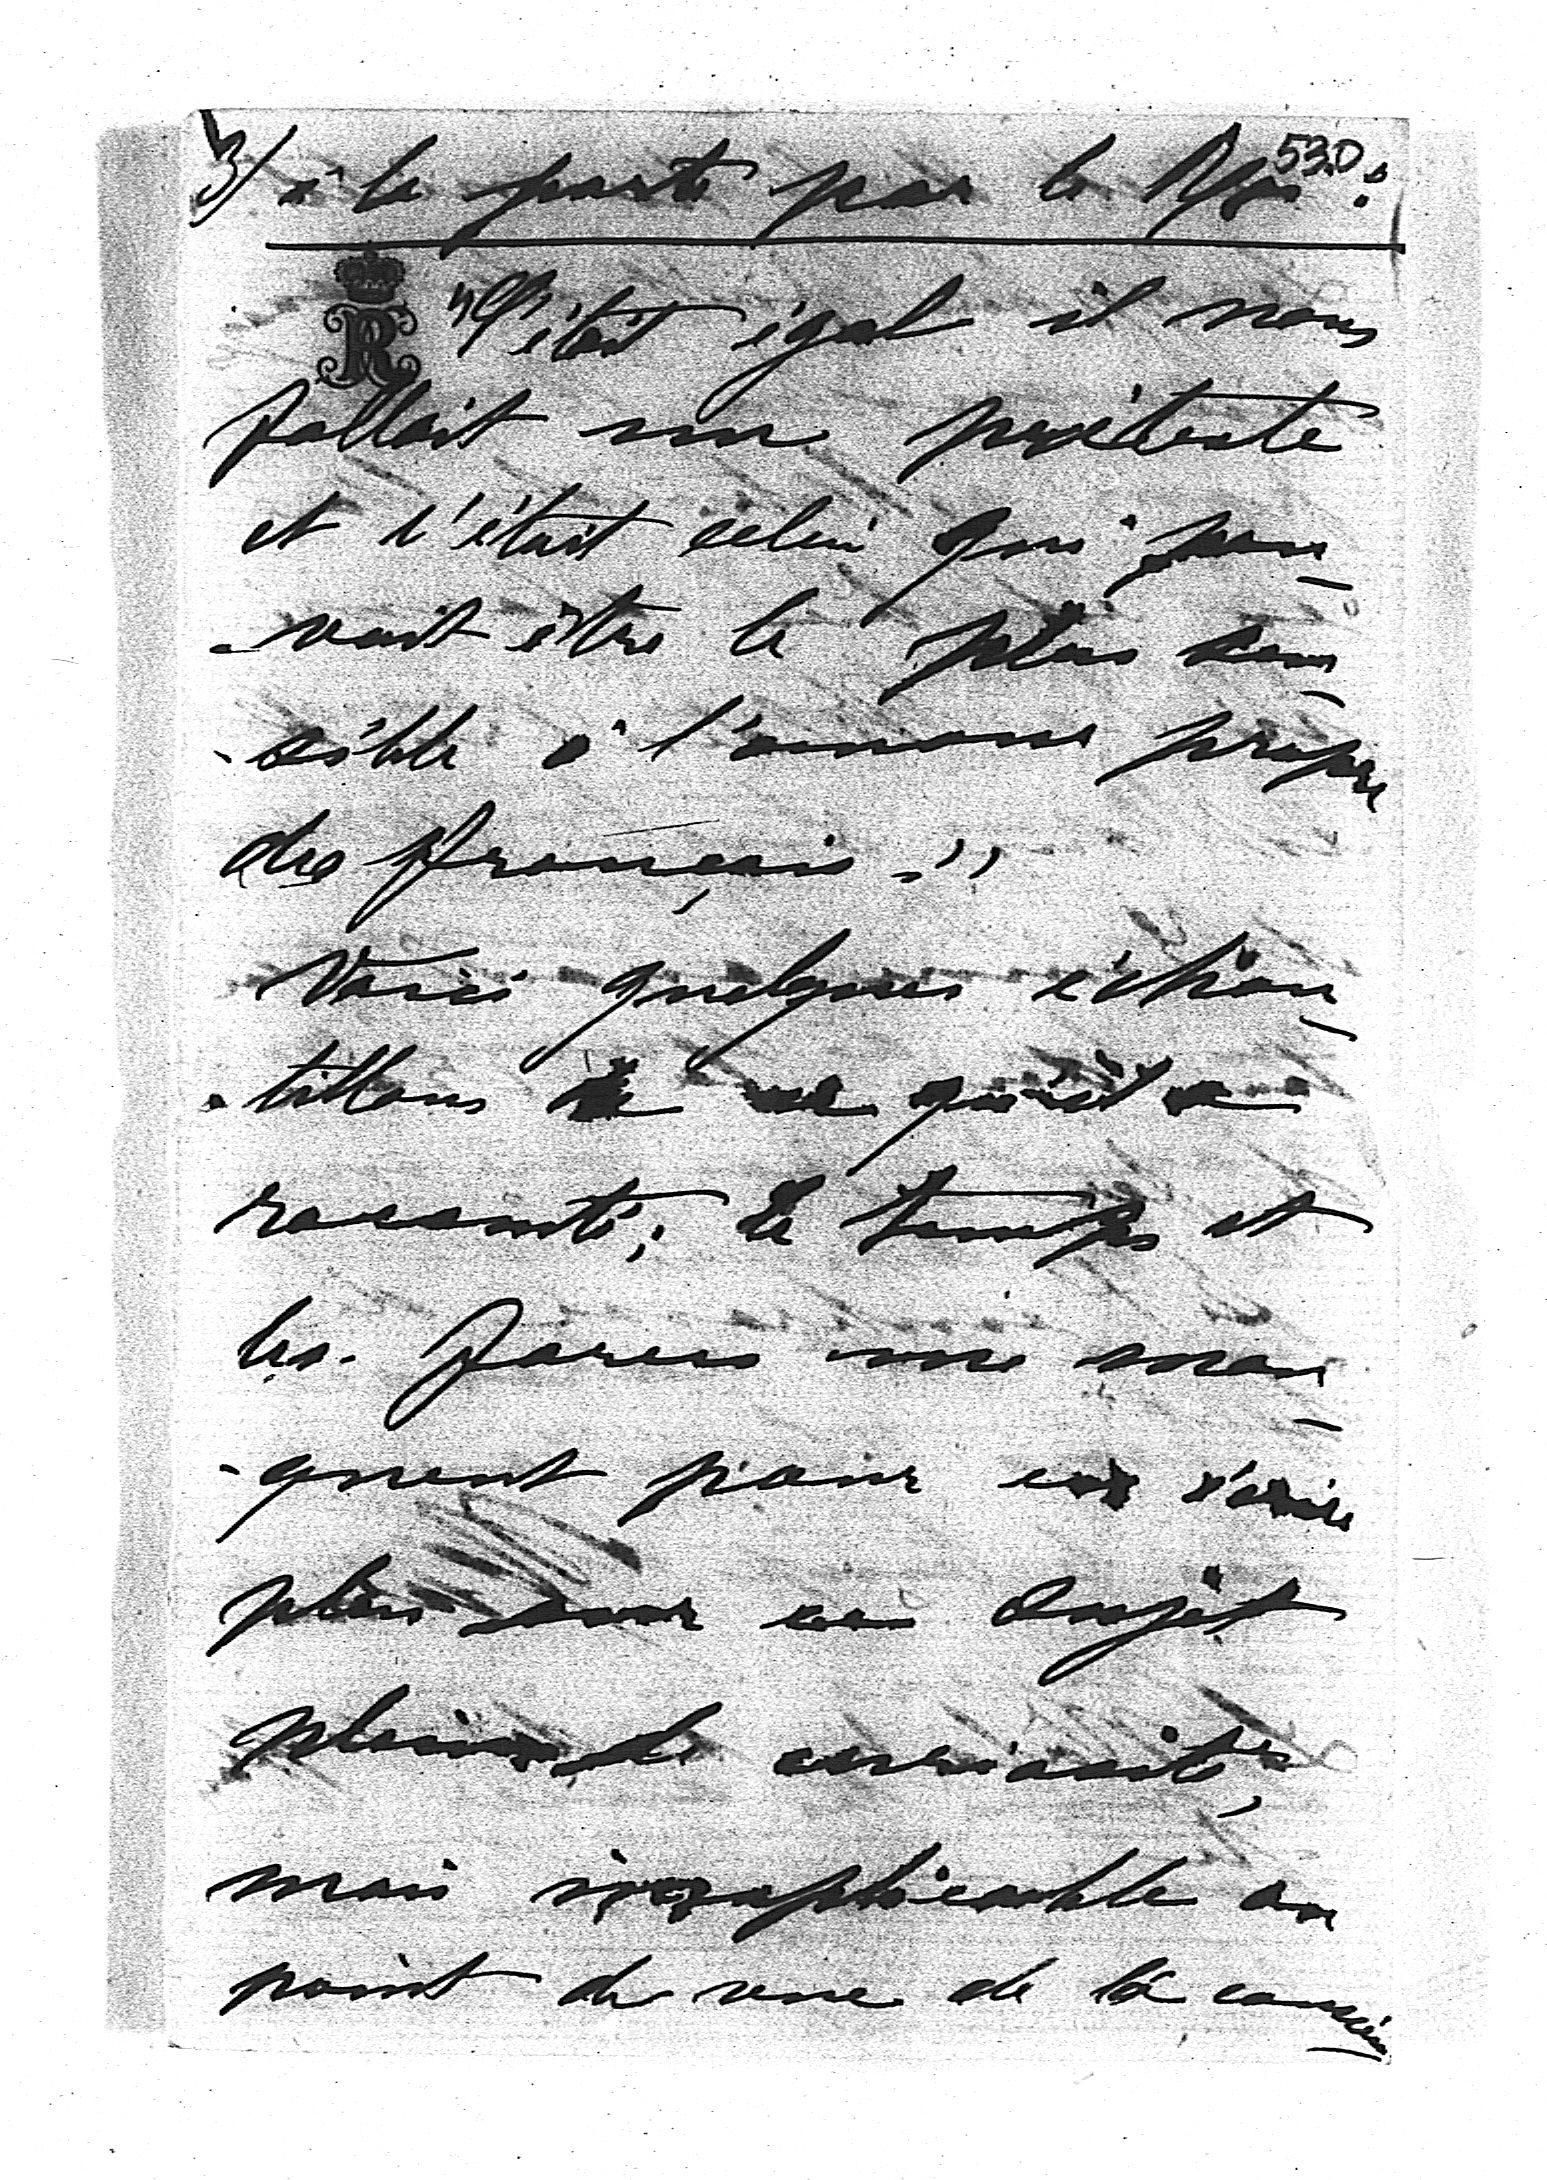 3/ à la porte par le Roi : 530
R
"C'était égal il nous
fallait un prétexte
et c'était celui qui pou_
-vait être le plus sen_
-sible à l'amour propre
des français."
Voici quelques échan_
-tillons de ce qu'il a
raconté; le temps et
les forces me man_
-quent pour en écrire
plus sur ce sujet
plein de curiosité,
mais inexplicable au
point de vue de la conscien_